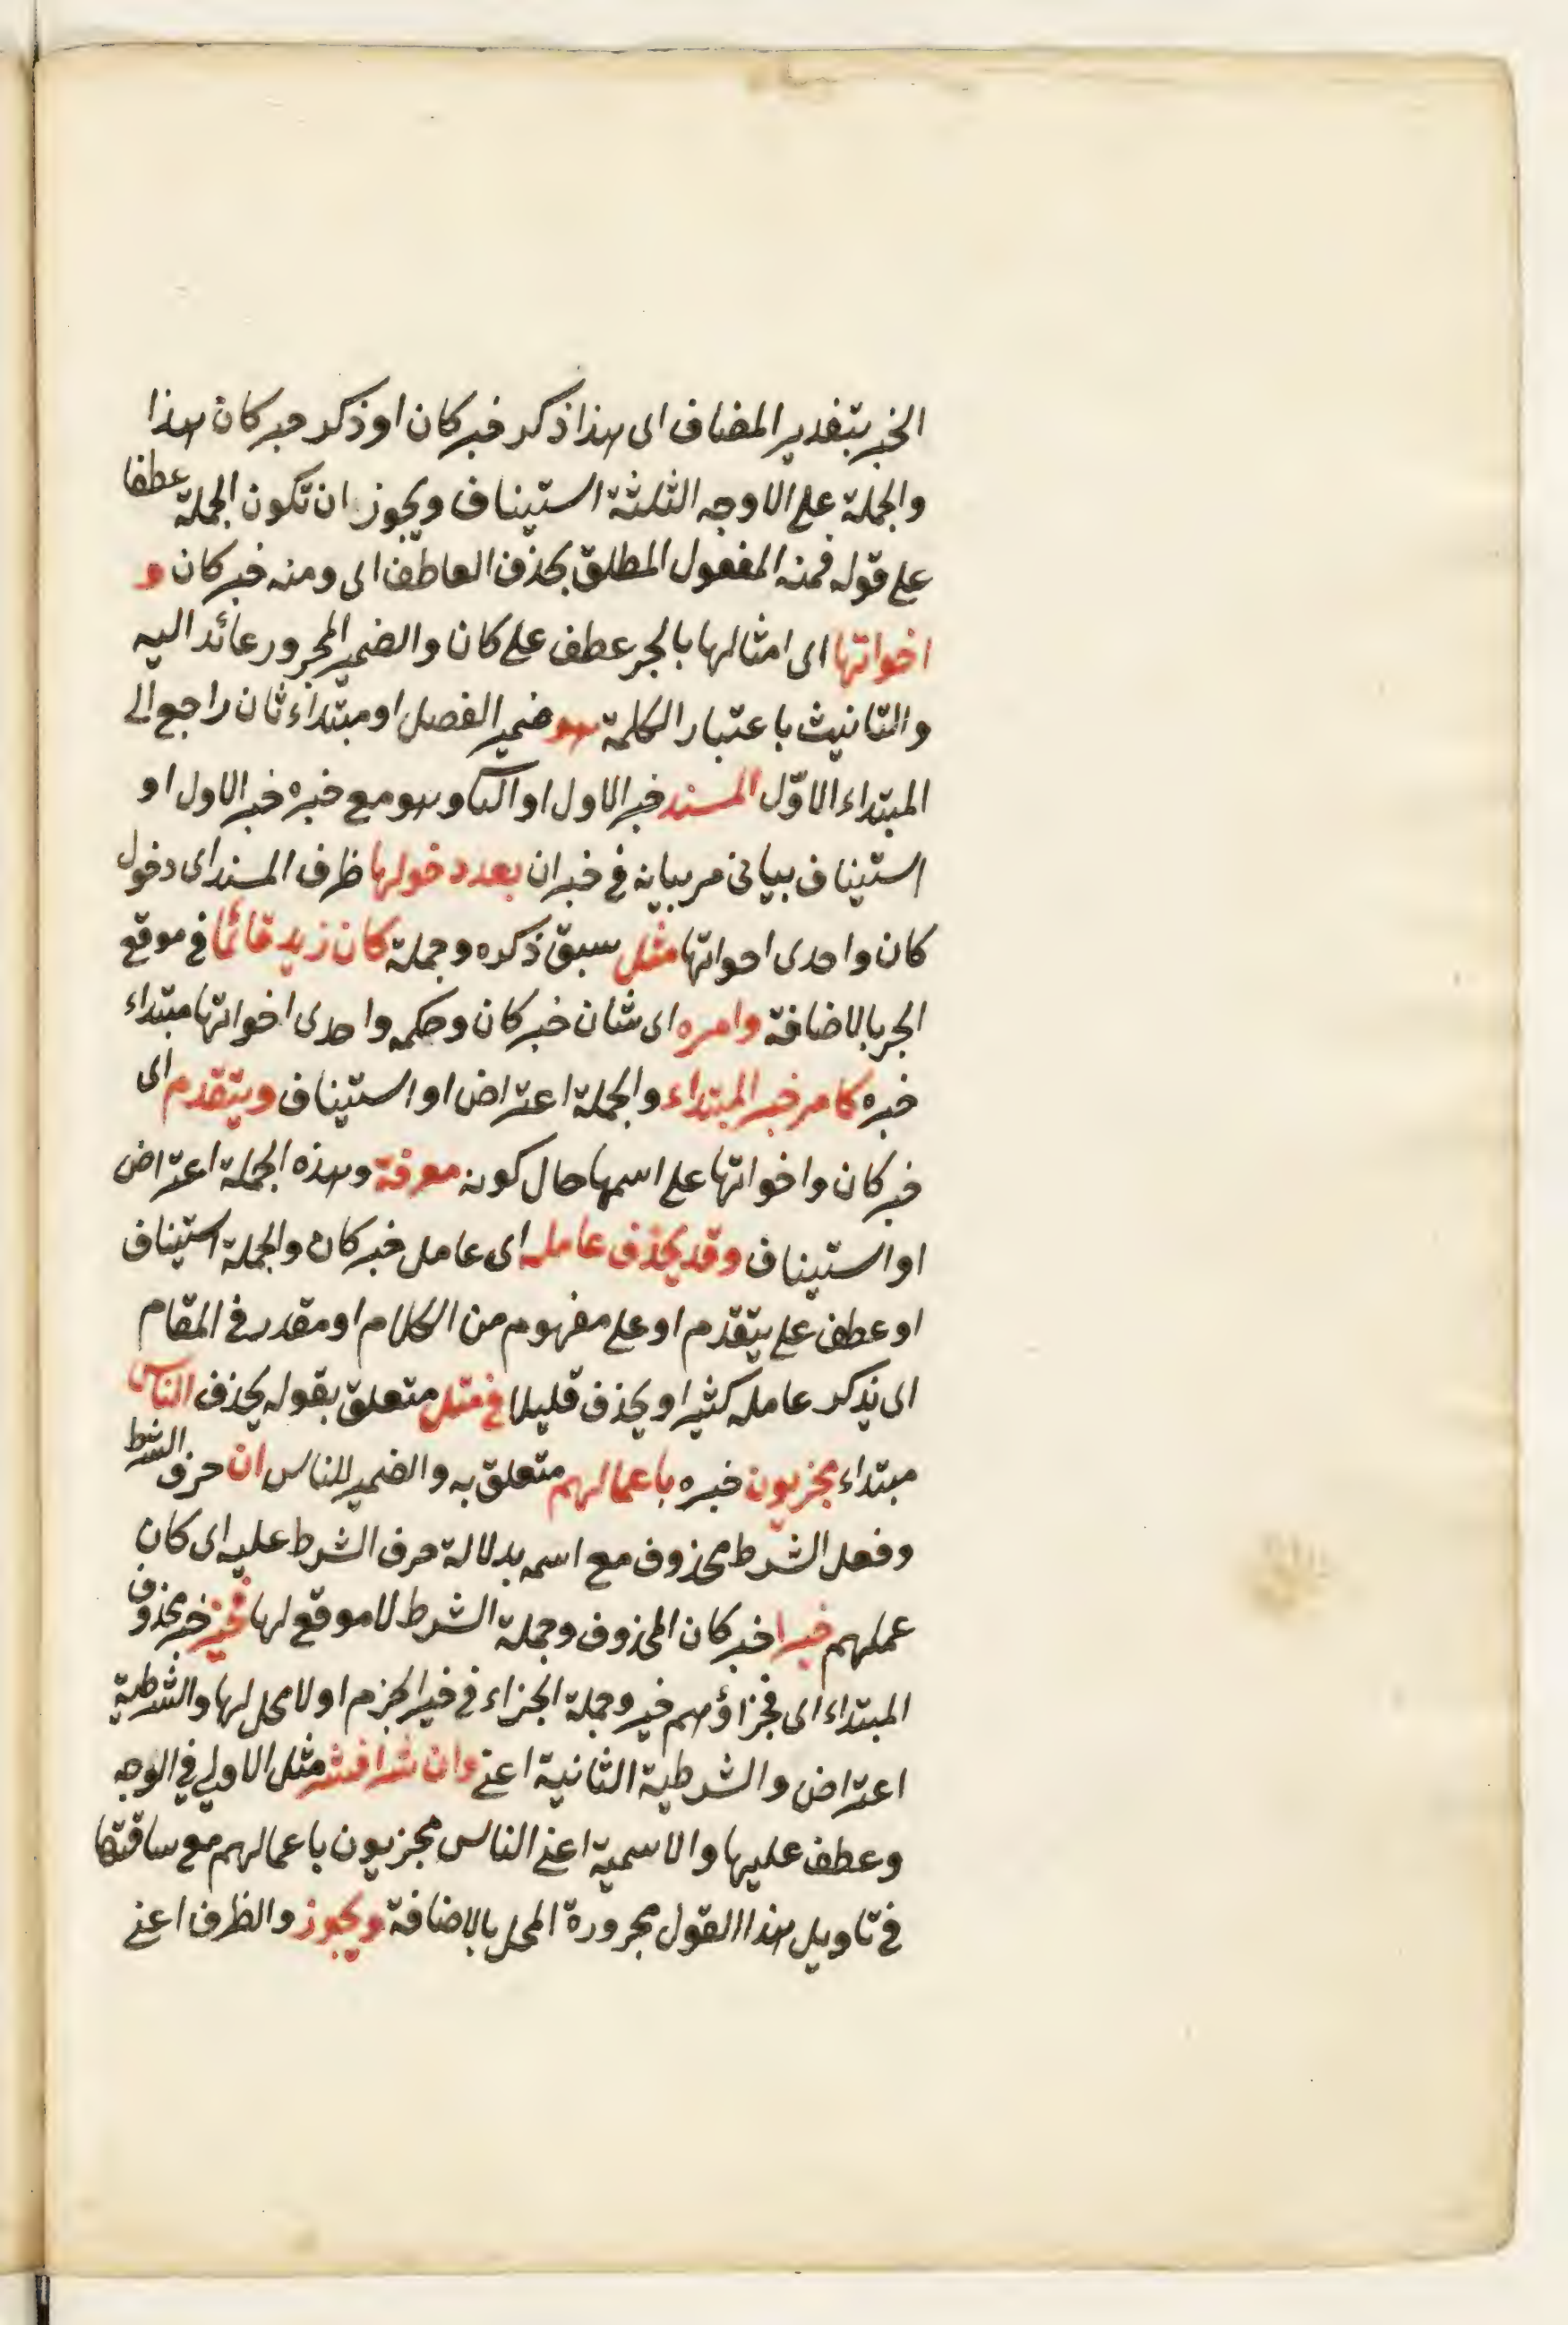 الخبر بتقدير المضاف اى هذا ذكر خبر كان او ذكر خبر كان هذا
والجملة على الاوجه الثلثة استيناف ويجوز ان تكون الجملة عطفا
على قوله فمنه المفعول المطلق بحذف العاطف اى ومنه خبر كان و
اخواتها اى امثالها بالجر عطف على كان والضمير المجرور عائد اليه
والتانيث باعتبار الكلمة هو ضمير الفصل او مبتداء ثان راجع الى
المبتداء الاوّل المسند خبر الاول او الثانى وهو مع خبره خبر الاول او
استيناف بيانى مر بيانه فى خبر ان بعد دخولها ظرف المسند اى دخول
كان واحدى اخواتها مثل سبق ذكره وجملة كان زيد قائما فى موقع
الجر بالاضافة وامره اى شان خبر كان وحكمه واحدى اخواتها مبتداء
خبره كامر خبر المبتداء والجملة اعتراض او استيناف ويتقدم اى
خبر كان واخواتها على اسمها حال كونه معرفة وهذه الجملة اعتراض
او استيناف وقد يحذف عامله اى عامل خبر كان والجملة استيناف
او عطف على يتقدم او على مفهوم من الكلام او مقدر فى المقام
اى يذكر عامله كثيرا ويحذف قليلا فى مثل متعلق بقوله يحذف الناس
مبتداء مجزيون خبره باعمالهم متعلق به والضمير للناس ان حرف الشرط
وفعل الشرط محذوف مع اسمه بدلالة حرف الشرط عليه اى كان
عملهم خيرا خبر كان المحذوف وجملة الشرط لا موقع لها فخير خبر محذوف
المبتداء اى فجزاؤهم خير وجملة الجزاء فى خير الجزم او لا محل لها والشرطية
اعتراض والشرطية الثانية اعنى وان شرا فشر مثل الاولى فى الوجه
وعطف عليها والاسمية اعنى الناس مجزيون باعمالهم مع ساقتها
فى تاويل هذا القول مجرورة المحل بالاضافة ويجوز والظرف اعنى